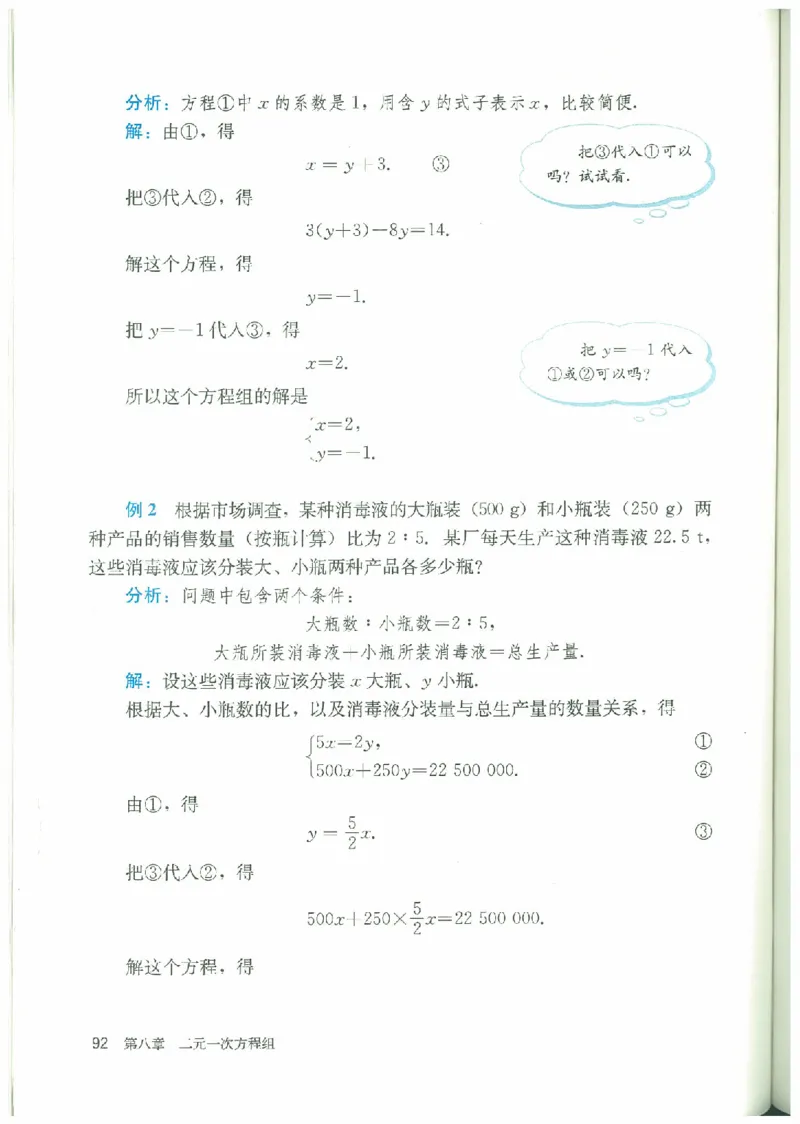 分析：方程①中 x 的系数是 1，用含 y 的式子表示 x，比较简便．
解：由①，得
x = y+3.　③
把③代入①可以
吗？试试看．
把③代入②，得
3(y+3)-8y=14.
解这个方程，得
y=-1.
把 y=-1 代入③，得
x=2.
把 y=-1 代入
①或②可以吗？
所以这个方程组的解是
x=2,
y=-1.
例 2　根据市场调查，某种消毒液的大瓶装（500 g）和小瓶装（250 g）两
种产品的销售数量（按瓶计算）比为 2：5．某厂每天生产这种消毒液 22.5 t，
这些消毒液应该分装大、小瓶两种产品各多少瓶？
分析：问题中包含两个条件：
大瓶数：小瓶数=2：5，
大瓶所装消毒液+小瓶所装消毒液=总生产量．
解：设这些消毒液应该分装 x 大瓶、y 小瓶．
根据大、小瓶数的比，以及消毒液分装量与总生产量的数量关系，得
5x=2y,　①
500x+250y=22 500 000.　②
由①，得
y = 5/2 x.　③
把③代入②，得
500x+250×5/2 x=22 500 000.
解这个方程，得
92　第八章　二元一次方程组